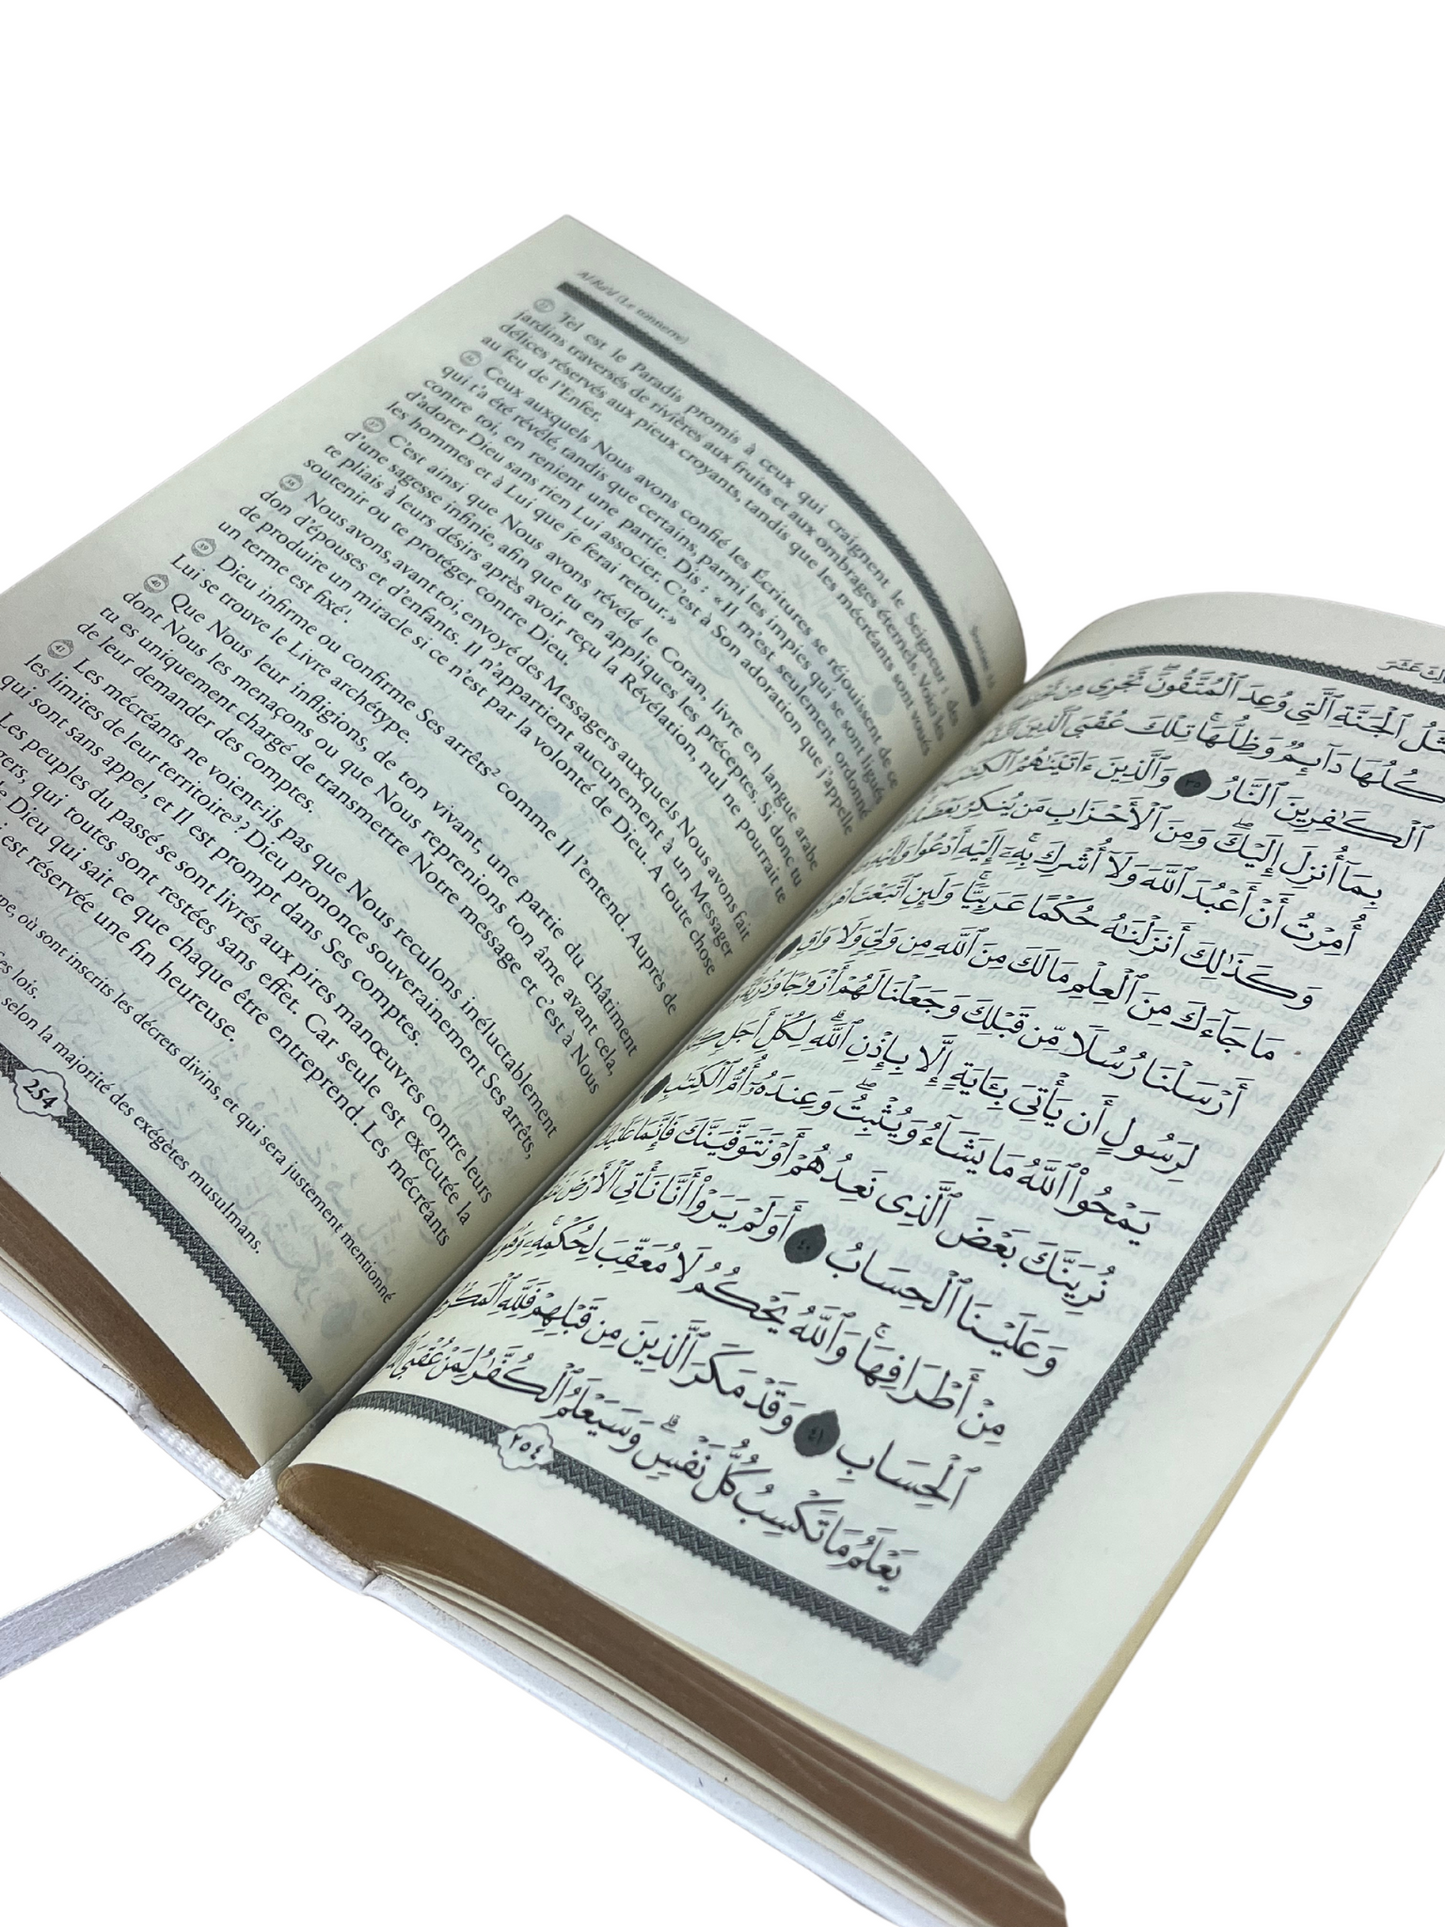 Al-Ra'd (Le tonnerre)
35 Tel est le Paradis promis à ceux qui craignent le Seigneur : des
jardins traversés de rivières aux fruits et aux ombrages éternels. Voici les
délices réservés aux pieux croyants, tandis que les mécréants sont voués
au feu de l'Enfer.
36 Ceux auxquels Nous avons confié les Écritures se réjouissent de ce
qui t'a été révélé, tandis que certains, parmi les impies qui se sont ligués
contre toi, en renient une partie. Dis : « Il m'est seulement ordonné
d'adorer Dieu sans rien Lui associer. C'est à Son adoration que j'appelle
les hommes et à Lui que je ferai retour. »
37 C'est ainsi que Nous avons révélé le Coran, livre en langue arabe
d'une sagesse infinie, afin que tu en appliques les préceptes. Si donc tu
te pliais à leurs désirs après avoir reçu la Révélation, nul ne pourrait te
soutenir ou te protéger contre Dieu.
38 Nous avons, avant toi, envoyé des Messagers auxquels Nous avons fait
don d'épouses et d'enfants. Il n'appartient aucunement à un Messager
de produire un miracle si ce n'est par la volonté de Dieu. A toute chose
un terme est fixé¹.
39 Dieu infirme ou confirme Ses arrêts² comme Il l'entend. Auprès de
Lui se trouve le Livre archétype.
40 Que Nous leur infligions, de ton vivant, une partie du châtiment
dont Nous les menaçons ou que Nous reprenions ton âme avant cela,
tu es uniquement chargé de transmettre Notre message et c'est à Nous
de leur demander des comptes.
41 Les mécréants ne voient-ils pas que Nous reculons inéluctablement
les limites de leur territoire³? Dieu prononce souverainement Ses arrêts,
qui sont sans appel, et Il est prompt dans Ses comptes.
Les peuples du passé se sont livrés aux pires manœuvres contre leurs
qui toutes sont restées sans effet. Car seule est exécutée la
de Dieu qui sait ce que chaque être entreprend. Les mécréants
est réservée une fin heureuse.
où sont inscrits les décrets divins, et qui sera justement mentionné
lois.
selon la majorité des exégètes musulmans.
254
ٱلْجَنَّةِ ٱلَّتِي وُعِدَ ٱلْمُتَّقُونَۖ تَجْرِي مِن
أُكُلُهَا دَآئِمٌ وَظِلُّهَاۚ تِلْكَ عُقْبَى ٱلَّذِينَ
ٱلْكَٰفِرِينَ ٱلنَّارُ ٣٥ وَٱلَّذِينَ ءَاتَيْنَٰهُمُ
بِمَآ أُنزِلَ إِلَيْكَۖ وَمِنَ ٱلْأَحْزَابِ مَن يُنكِرُ بَعْضَهُ
أُمِرْتُ أَنْ أَعْبُدَ ٱللَّهَ وَلَآ أُشْرِكَ بِهِۦٓ إِلَيْهِ أَدْعُوا۟
وَكَذَٰلِكَ أَنزَلْنَٰهُ حُكْمًا عَرَبِيًّاۚ وَلَئِنِ ٱتَّبَعْتَ
مَا جَآءَكَ مِنَ ٱلْعِلْمِ مَا لَكَ مِنَ ٱللَّهِ مِن وَلِيٍّ وَلَا وَاقٍ
أَرْسَلْنَا رُسُلًا مِّن قَبْلِكَ وَجَعَلْنَا لَهُمْ أَزْوَٰجًا وَذُرِّيَّةً
لِرَسُولٍ أَن يَأْتِيَ بِـَٔايَةٍ إِلَّا بِإِذْنِ ٱللَّهِۗ لِكُلِّ أَجَلٍ
يَمْحُوا۟ ٱللَّهُ مَا يَشَآءُ وَيُثْبِتُۖ وَعِندَهُۥٓ أُمُّ ٱلْكِتَٰبِ
نُرِيَنَّكَ بَعْضَ ٱلَّذِي نَعِدُهُمْ أَوْ نَتَوَفَّيَنَّكَ فَإِنَّمَا عَلَيْكَ
وَعَلَيْنَا ٱلْحِسَابُ ٤٠ أَوَلَمْ يَرَوْا۟ أَنَّا نَأْتِي ٱلْأَرْضَ
مِنْ أَطْرَافِهَاۚ وَٱللَّهُ يَحْكُمُ لَا مُعَقِّبَ لِحُكْمِهِۦۚ وَهُوَ
ٱلْحِسَابِ ٤١ وَقَدْ مَكَرَ ٱلَّذِينَ مِن قَبْلِهِمْ فَلِلَّهِ ٱلْمَكْرُ
يَعْلَمُ مَا تَكْسِبُ كُلُّ نَفْسٍۗ وَسَيَعْلَمُ ٱلْكُفَّٰرُ لِمَنْ عُقْبَى
٢٥٤